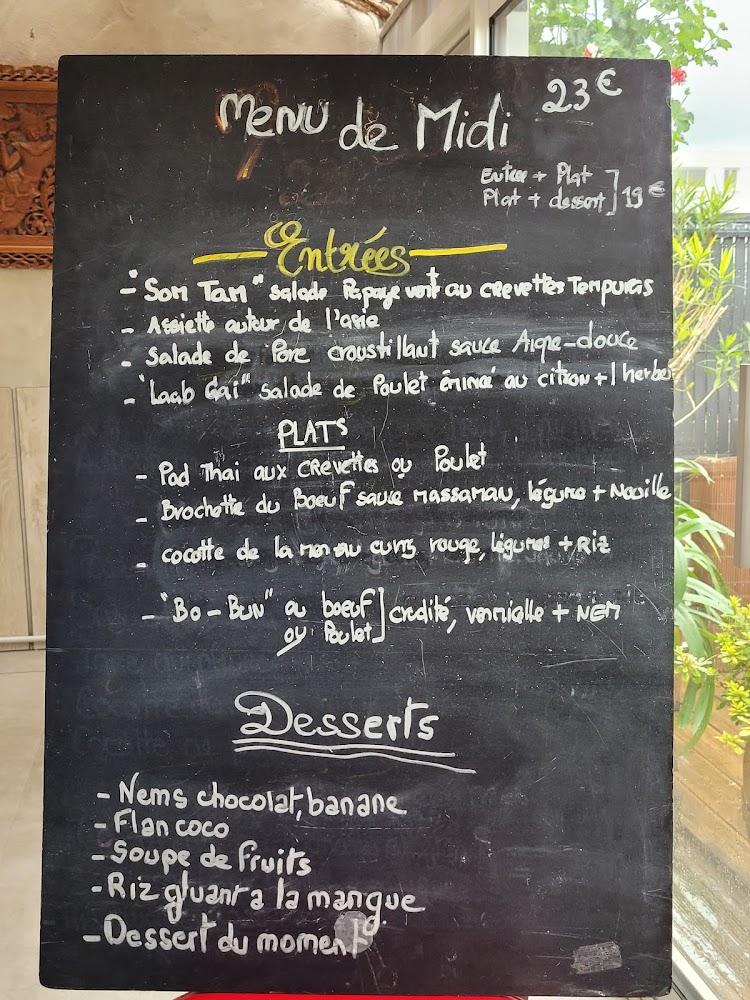 Menu de Midi 23€
Entree + Plat
Plat + dessert ] 19€
Entrées
- "Som Tam" salade Papaye vert au crevettes Tempuras
- Assiette autour de l'asie
- Salade de Porc croustillant sauce Aigre-douce
- "Laab Gai" salade de Poulet émincé au citron + herbe
PLATS
- Pad Thai aux crevettes ou Poulet
- Brochette du Boeuf sauce massaman, légume + Nouille
- cocotte de la mer au curry rouge, légumes + Riz
- "Bo-Bun" au boeuf ] crudité, vermicelle + NEM
ou Poulet
Desserts
- Nems chocolat, banane
- Flan coco
- Soupe de fruits
- Riz gluant a la mangue
- Dessert du moment